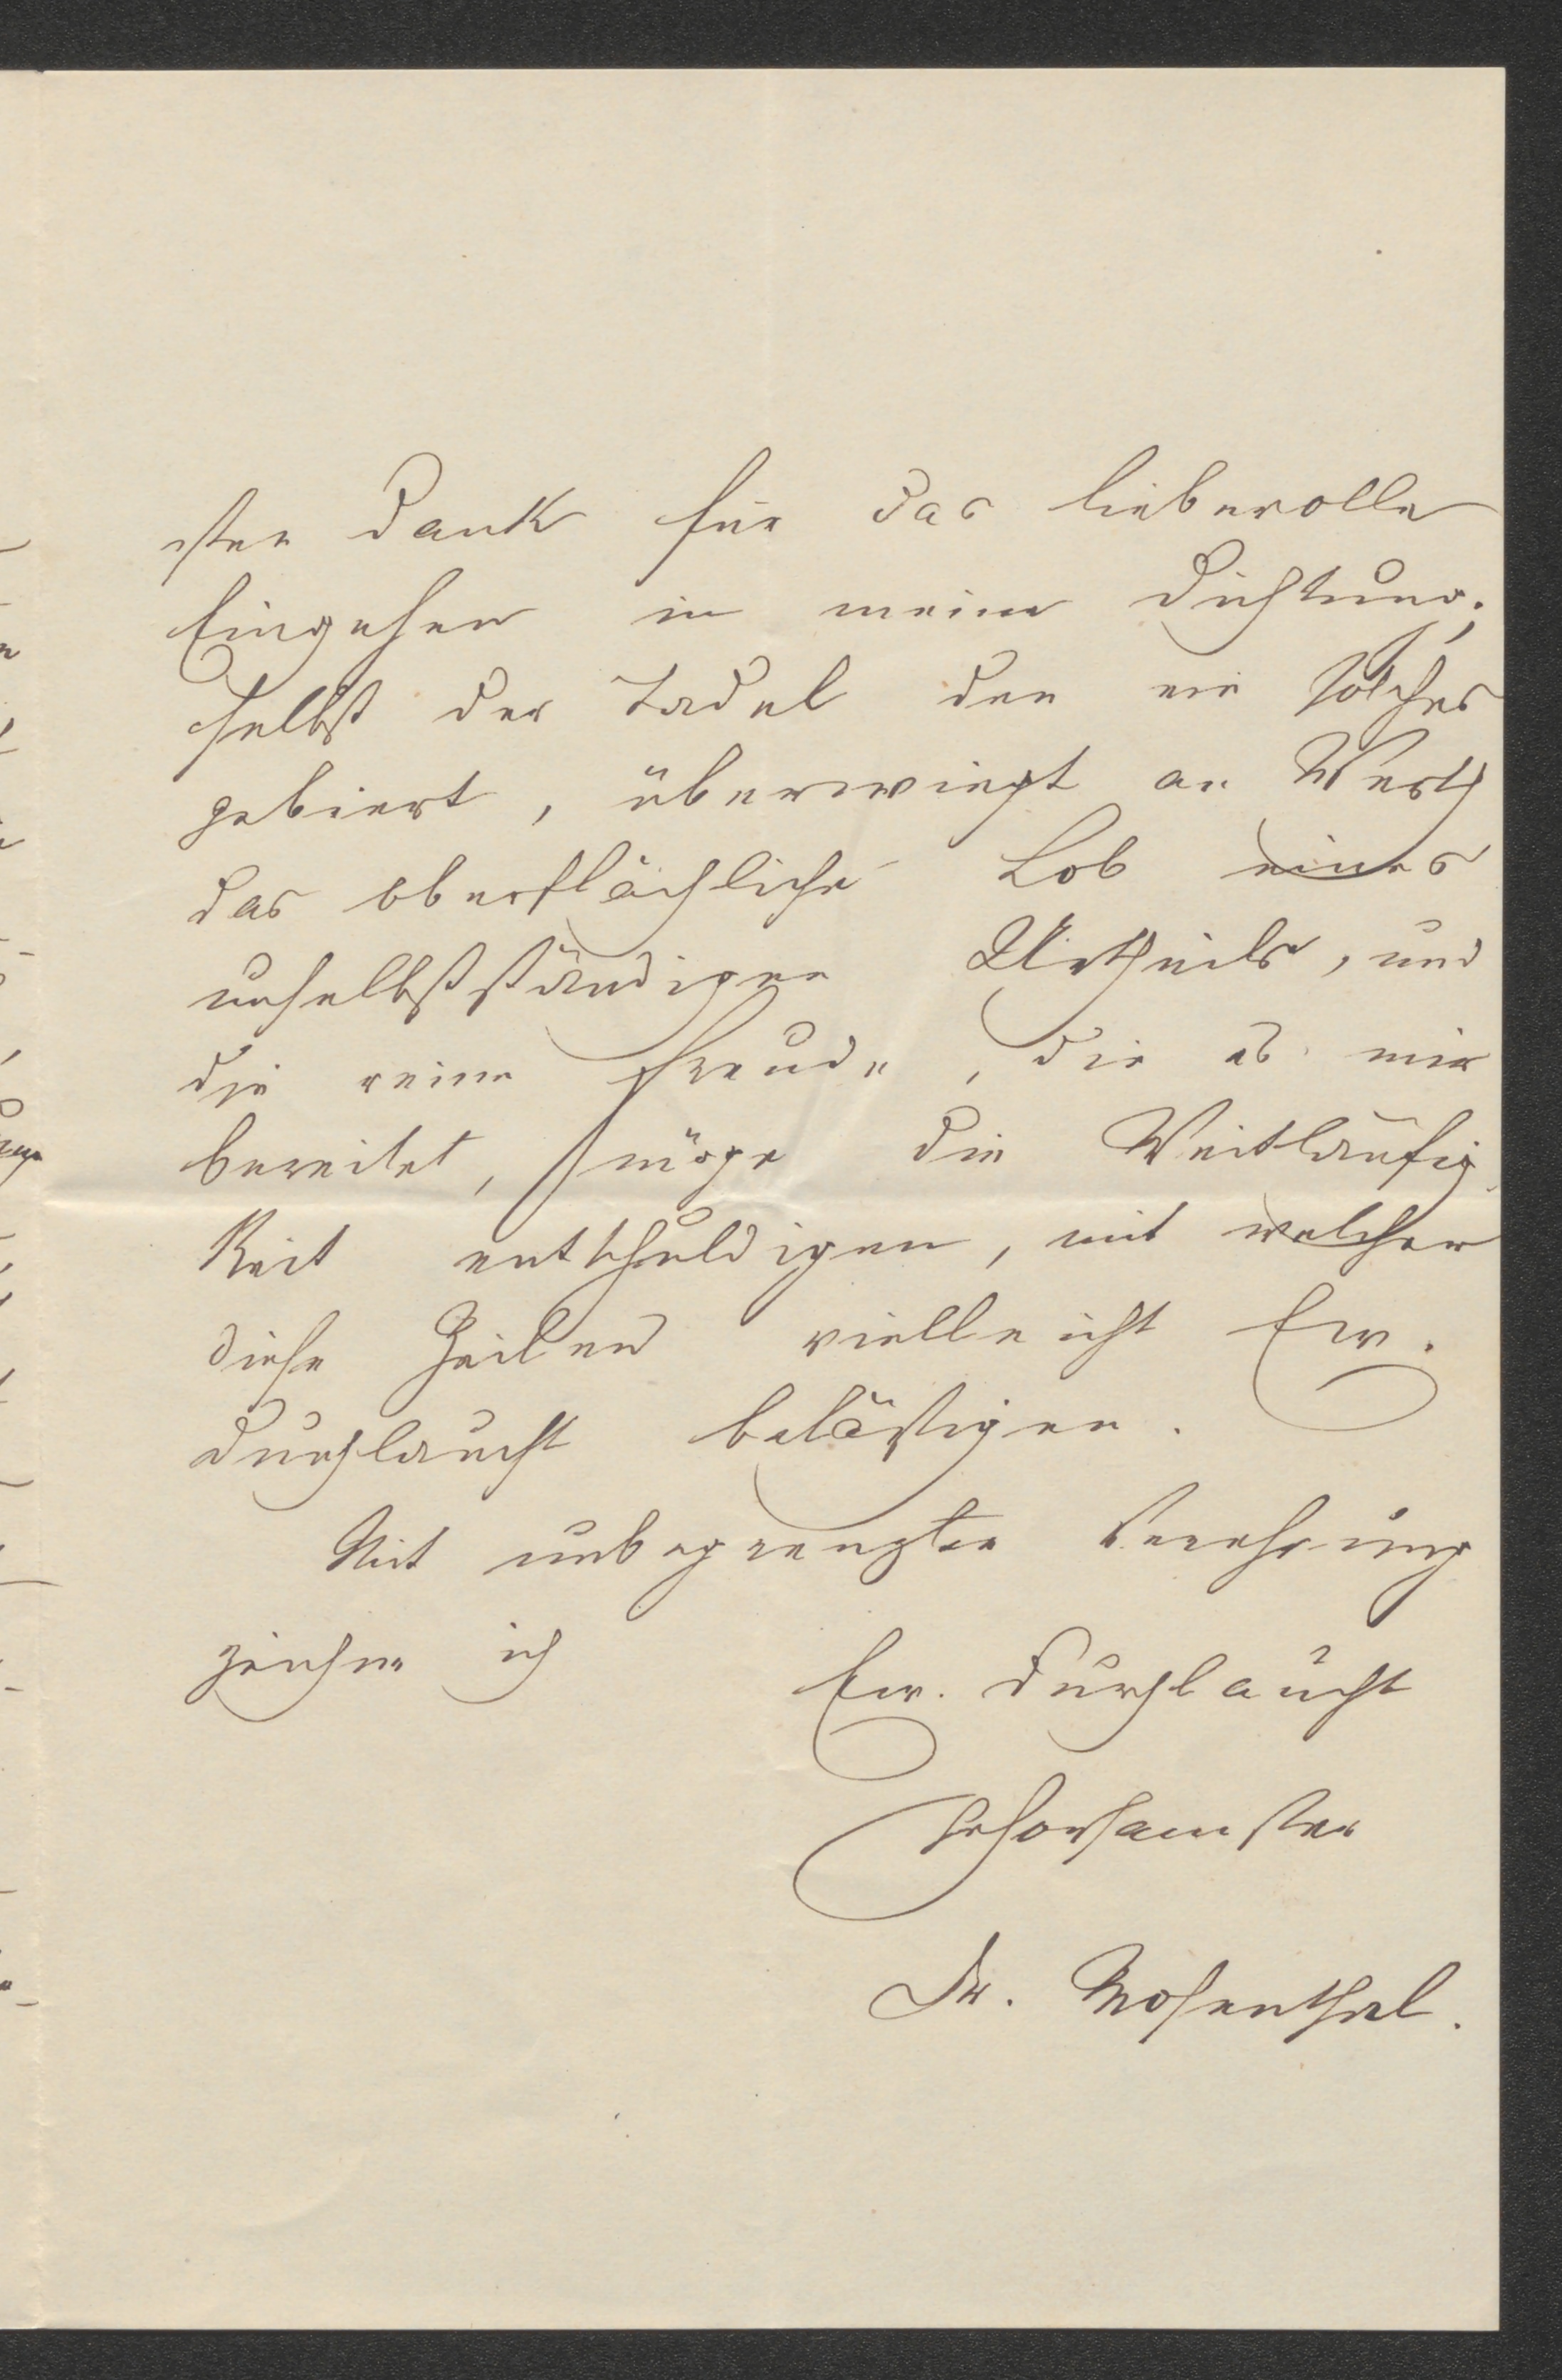 ster Dank für das liebevolle
Eingehen in meine Dichtung;
selbst der Tadel den ein solches
gebiert, überwiegt an Werth
das oberflächliche Lob eines
unselbstständigen Urtheils, und
die reine Freude, die es mir
bereitet, möge die Weitläufig
keit entschuldigen, mit welcher
diese Zeilen vielleicht Ew.
Durchlaucht belästigen.
Mit unbegrenzter Verehrung
zeichne ich Ew. Durchlaucht
gehorsamster
Dr. Mosenthal.